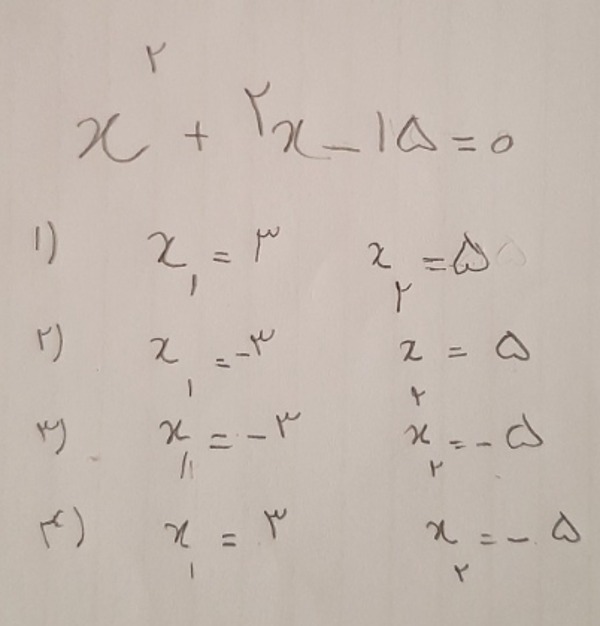 x^۲ + ۲x - ۱۵ = ۰
۱) x_۱ = ۳ x_۲ = ۵
۲) x_۱ = -۳ x_۲ = ۵
۳) x_۱ = -۳ x_۲ = -۵
۴) x_۱ = ۳ x_۲ = -۵